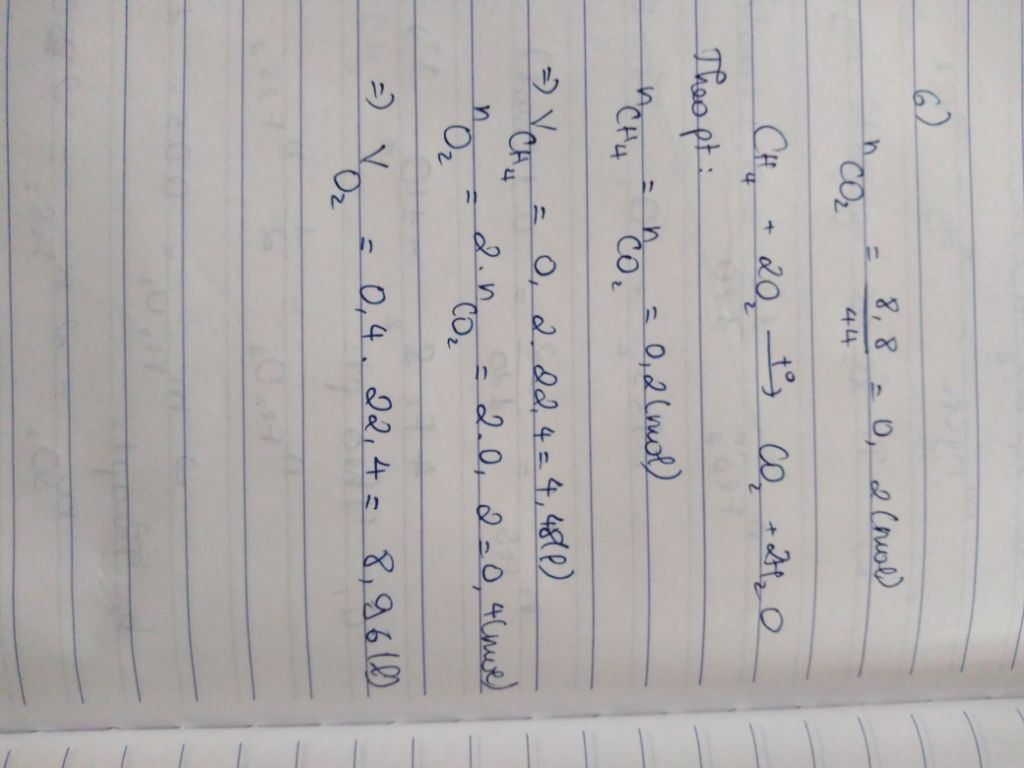 6)
n CO₂ = 8,8 / 44 = 0,2 (mol)
CH₄ + 2O₂ —t°→ CO₂ + 2H₂O
Theo pt:
n CH₄ = n CO₂ = 0,2 (mol)
=) V CH₄ = 0,2.22,4 = 4,48 (l)
n O₂ = 2.n CO₂ = 2.0,2 = 0,4 (mol)
=) V O₂ = 0,4. 22,4 = 8,96 (l)